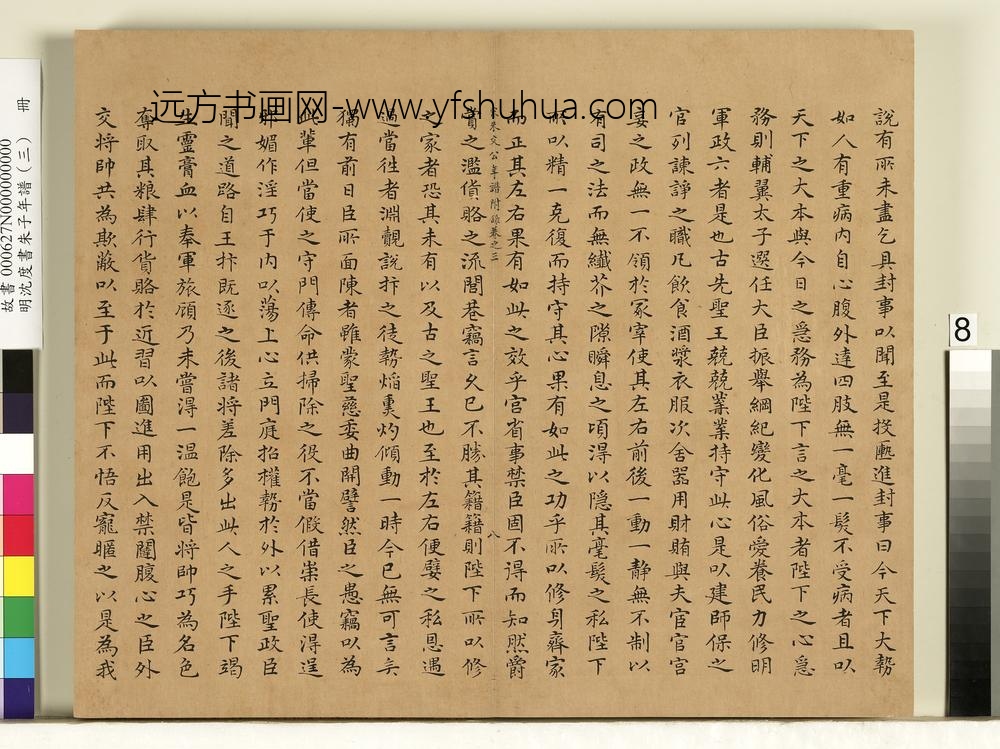 說有所未盡乞具封事以聞至是投匭進封事曰今天下大勢
如人有重病內自心腹外達四肢無一毫一髮不受病者且以
天下之大本與今日之急務為陛下言之大本者陛下之心急
務則輔翼太子選任大臣振舉綱紀變化風俗愛養民力修明
軍政六者是也古先聖王兢兢業業持守此心是以建師保之
官列諫諍之職凡飲食酒漿衣服次舍器用財賄與夫宦官宮
妾之政無一不領於冢宰使其左右前後一動一靜無不制以
有司之法而無纖芥之隙瞬息之頃得以隱其毫髮之私陛下
所以精一克復而持守其心果有如此之功乎所以修身齊家
而正其左右果有如此之效乎宮省事禁臣固不得而知然爵
宋朱文公年譜附錄卷之三
八
賞之濫貨賂之流閭巷竊言久已不勝其籍籍則陛下所以修
之家者恐其未有以及古之聖王也至於左右便嬖之私恩遇
過當往者淵覿說抃之徒勢焰熏灼傾動一時今已無可言矣
獨有前日臣所面陳者雖蒙聖慈委曲開譬然臣之愚竊以為
此輩但當使之守門傳命供掃除之役不當假借崇長使得逞
邪媚作淫巧于內以蕩上心立門庭招權勢於外以累聖政臣
聞之道路自王抃既逐之後諸將差除多出此人之手陛下竭
生靈膏血以奉軍旅顧乃未嘗得一溫飽是皆將帥巧為名色
奪取其糧肆行貨賂於近習以圖進用出入禁闥腹心之臣外
交將帥共為欺蔽以至于此而陛下不悟反寵暱之以是為我
远方书画网-www.yfshuhua.com
故書000627N000000000
明沈度書朱子年譜(三) 冊
8